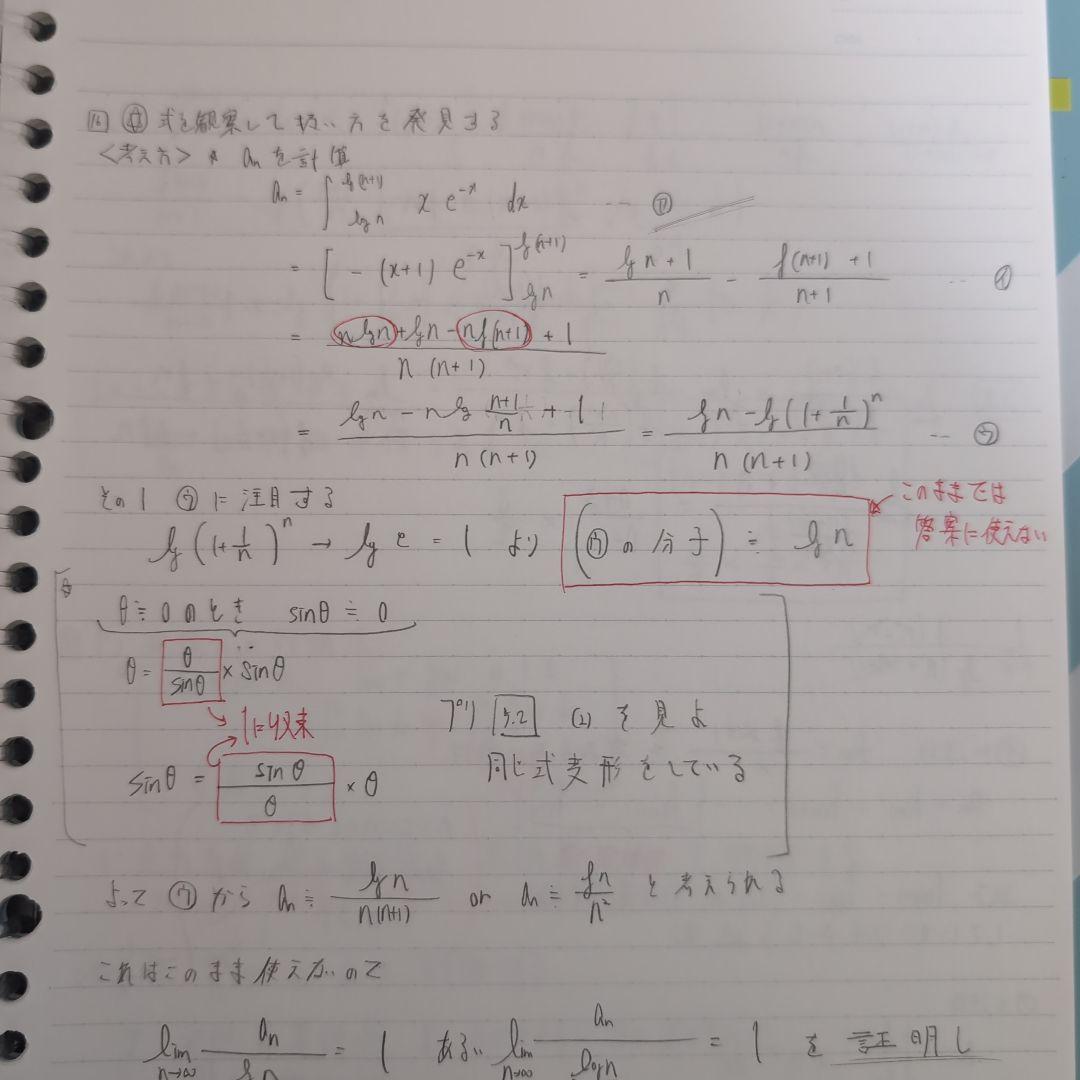 16 ㊟ 式を観察して扱い方を発見する
<考え方> * an を計算
an = ∫_{log n}^{log(n+1)} x e^{-x} dx … ㋐
= [ -(x+1) e^{-x} ]_{log n}^{log(n+1)} = (log n + 1)/n - (log(n+1) + 1)/(n+1) … ㋑
= (n log n + log n - n log(n+1) + 1)/(n(n+1))
= (log n - n log (n+1)/n + 1)/(n(n+1)) = (log n - log(1+1/n)^n)/(n(n+1)) … ㋒
その1 ㋒に注目する
log(1+1/n)^n → log e = 1 より (㋒の分子) ≒ log n
このままでは
答案に使えない
θ≒0のとき sinθ≒0
θ = θ/sinθ × sinθ
1に収束
プリ 5.2 (2) を見よ
sinθ = sinθ/θ × θ
同じ式変形をしている
よって ㋒から an ≒ log n/(n(n+1)) or an ≒ log n/n² と考えられる
これはこのまま使えないので
lim_{n→∞} an/log n = 1 あるい lim_{n→∞} an/log n = 1 を 証明し